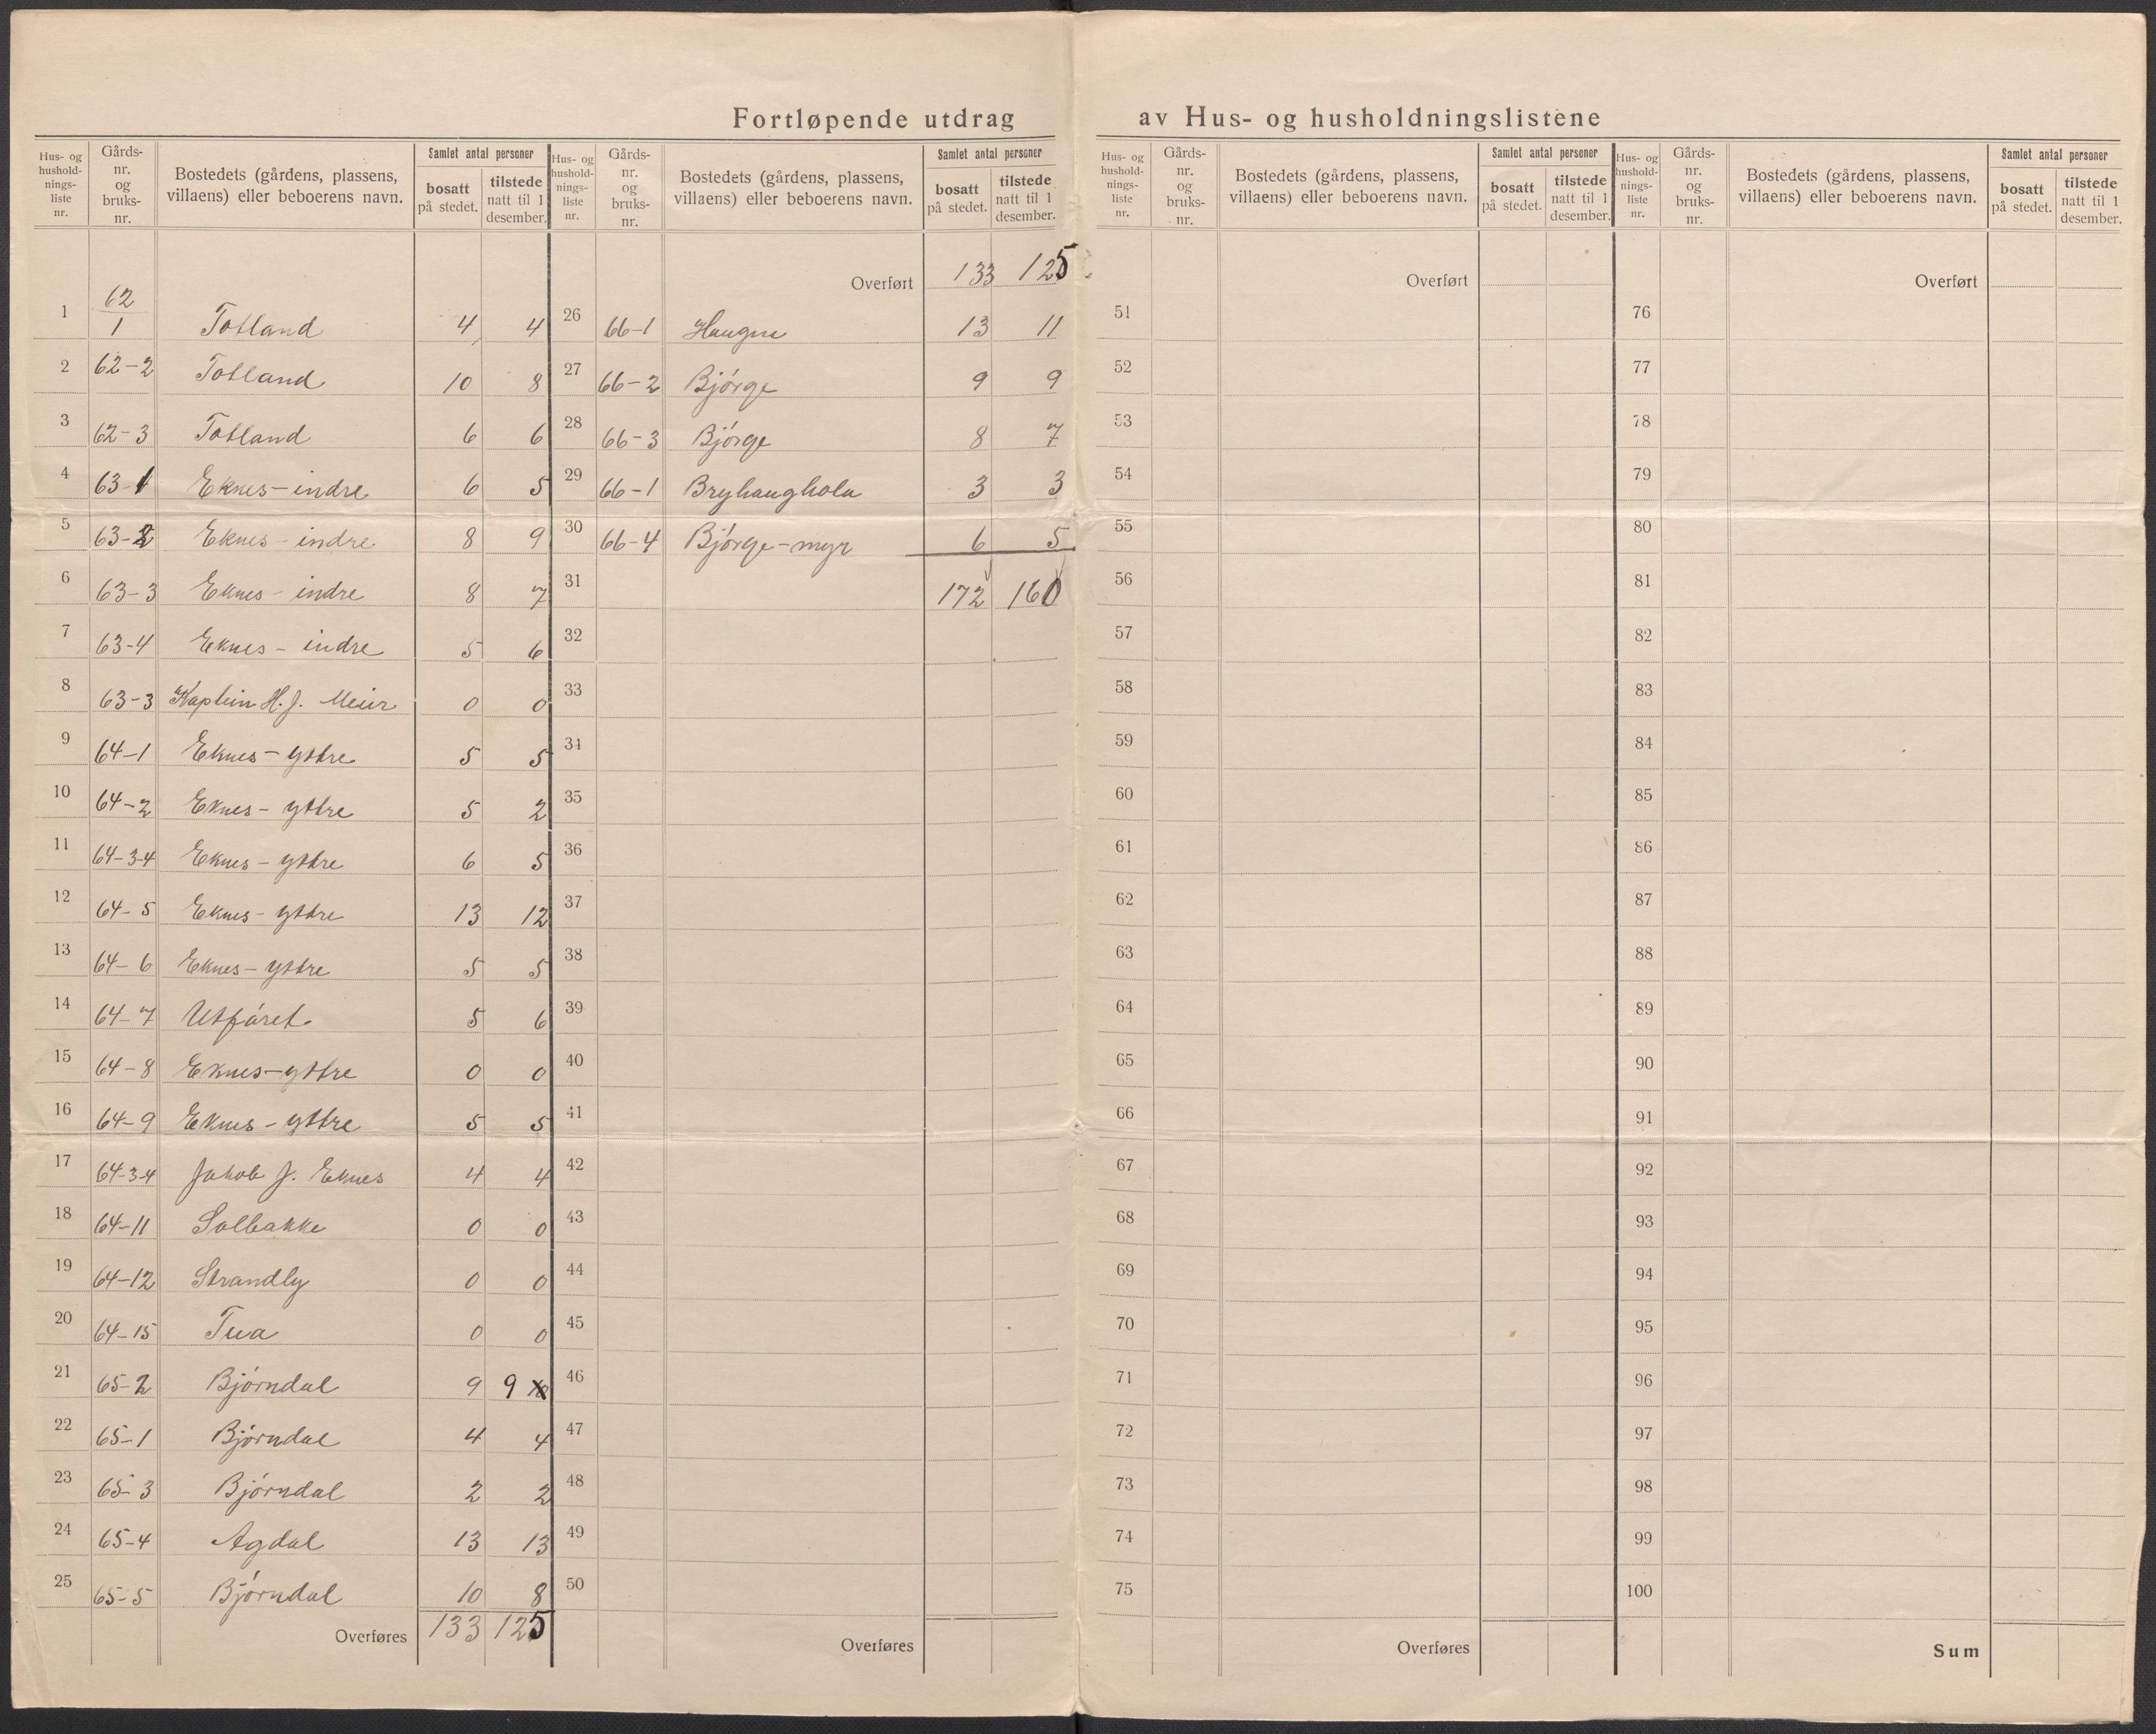 Fortløpende utdrag av Hus- og husholdningslistene
Hus- og hushold-nings-liste nr. | Gårds-nr. og bruks-nr. | Bostedets (gårdens, plassens, villaens) eller beboerens navn. | Samlet antal personer | bosatt på stedet. | tilstede natt til 1 desember.
1 62/1 Totland 4 4
2 62-2 Totland 10 8
3 62-3 Totland 6 6
4 63-1 Eknes-indre 6 5
5 63-2 Eknes-indre 8 9
6 63-3 Eknes-indre 8 7
7 63-4 Eknes-indre 5 6
8 63-3 Kaptein H. J. Meier 0 0
9 64-1 Eknes-yttre 5 5
10 64-2 Eknes-yttre 5 2
11 64-3-4 Eknes-yttre 6 5
12 64-5 Eknes-yttre 13 12
13 64-6 Eknes-yttre 5 5
14 64-7 Utfáret 5 6
15 64-8 Eknes-yttre 0 0
16 64-9 Eknes-yttre 5 5
17 64-3-4 Jakob J. Eknes 4 4
18 64-11 Solbakke 0 0
19 64-12 Strandly 0 0
20 64-15 Tua 0 0
21 65-2 Bjørndal 9 9
22 65-1 Bjørndal 4 4
23 65-3 Bjørndal 2 2
24 65-4 Agdal 13 13
25 65-5 Bjørndal 10 8
Overføres 133 125
Hus- og hushold-nings-liste nr. | Gårds-nr. og bruks-nr. | Bostedets (gårdens, plassens, villaens) eller beboerens navn. | Samlet antal personer | bosatt på stedet. | tilstede natt til 1 desember.
Overført 133 125
26 66-1 Haugen 13 11
27 66-2 Bjørge 9 9
28 66-3 Bjørge 8 7
29 66-1 Bryhaughola 3 3
30 66-4 Bjørge-myr 6 5
31 172 160
32
33
34
35
36
37
38
39
40
41
42
43
44
45
46
47
48
49
50
Overføres
Hus- og hushold-nings-liste nr. | Gårds-nr. og bruks-nr. | Bostedets (gårdens, plassens, villaens) eller beboerens navn. | Samlet antal personer | bosatt på stedet. | tilstede natt til 1 desember.
Overført
51
52
53
54
55
56
57
58
59
60
61
62
63
64
65
66
67
68
69
70
71
72
73
74
75
Overføres
Hus- og hushold-nings-liste nr. | Gårds-nr. og bruks-nr. | Bostedets (gårdens, plassens, villaens) eller beboerens navn. | Samlet antal personer | bosatt på stedet. | tilstede natt til 1 desember.
Overført
76
77
78
79
80
81
82
83
84
85
86
87
88
89
90
91
92
93
94
95
96
97
98
99
100
Sum